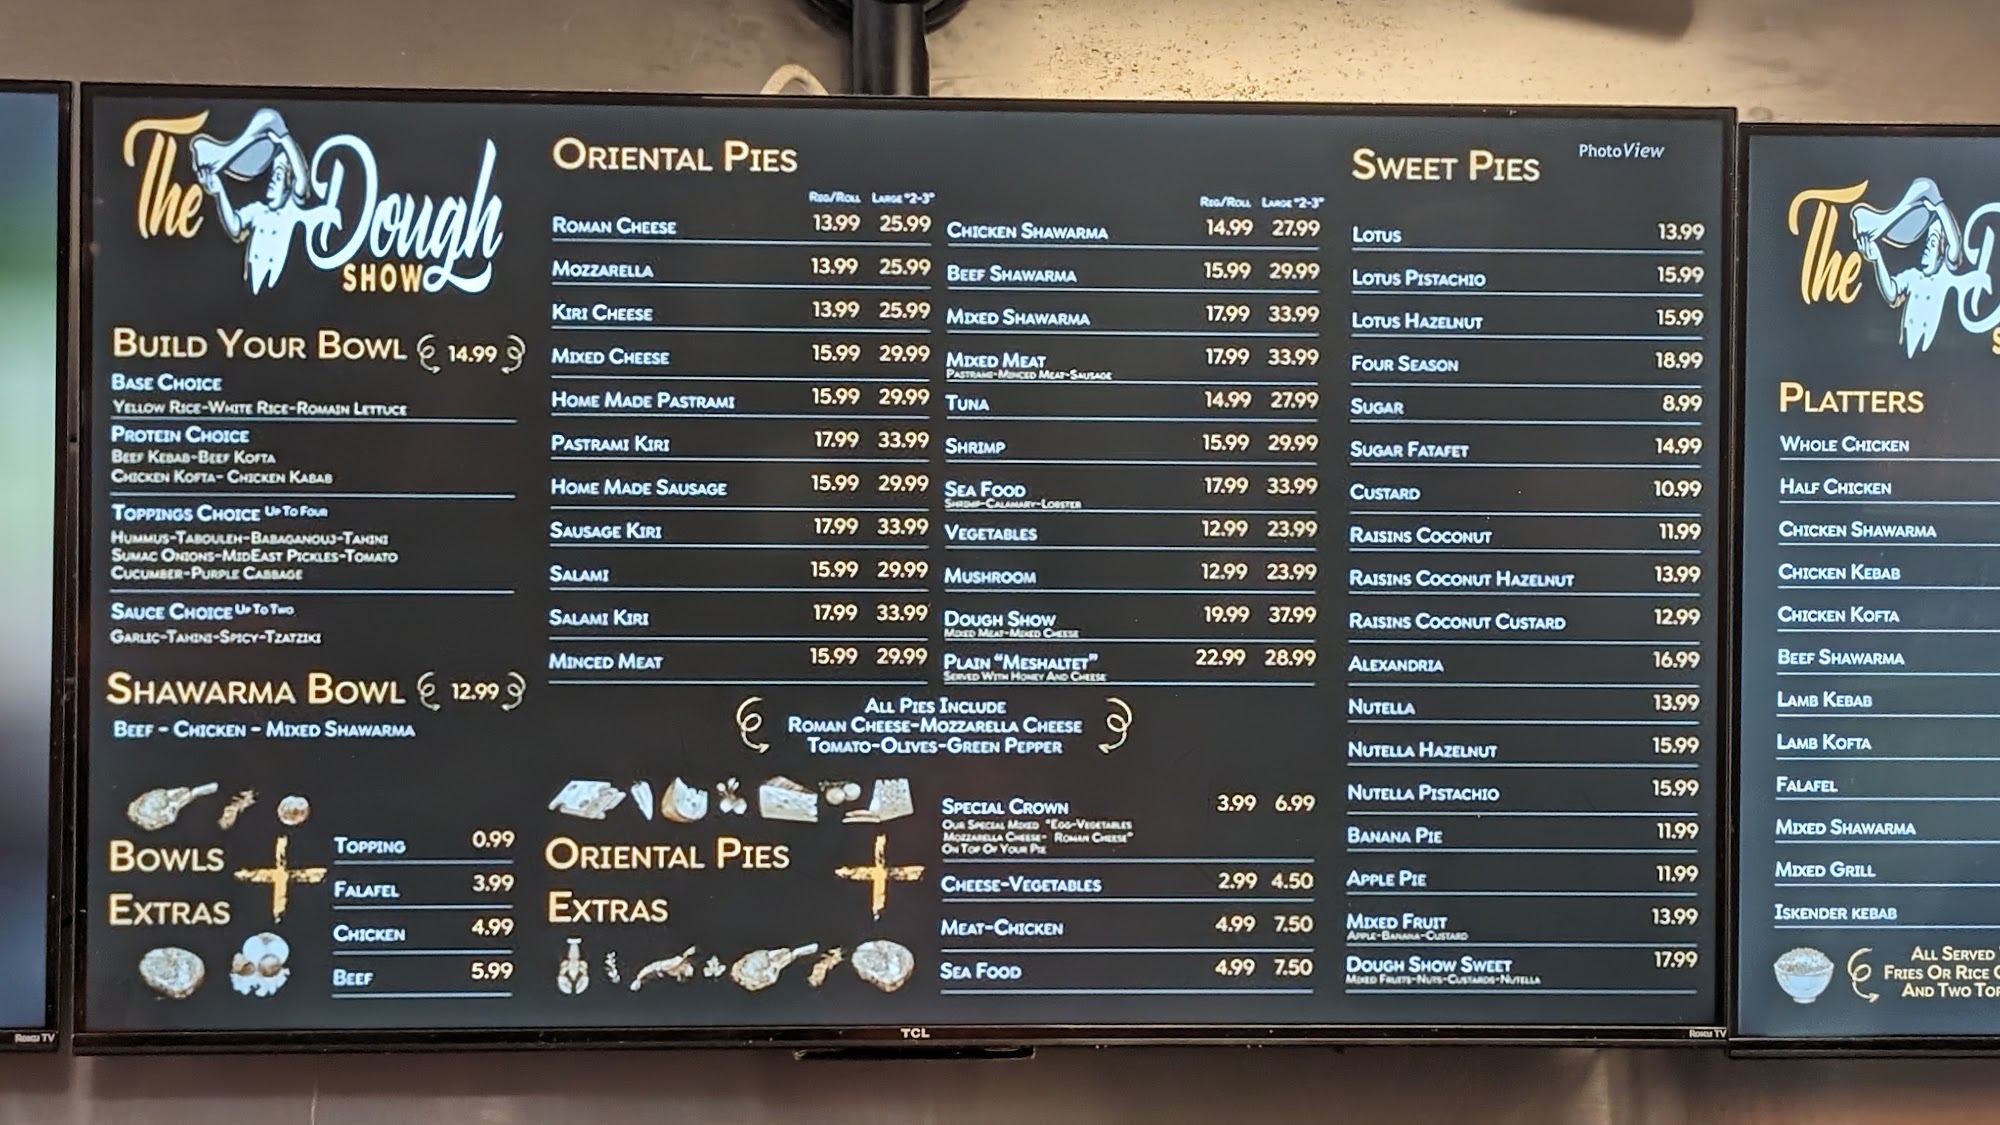 The Dough
SHOW
BUILD YOUR BOWL 14.99
BASE CHOICE
YELLOW RICE-WHITE RICE-ROMAIN LETTUCE
PROTEIN CHOICE
BEEF KEBAB-BEEF KOFTA
CHICKEN KOFTA- CHICKEN KABAB
TOPPINGS CHOICE UP TO FOUR
HUMMUS-TABOULEH-BABAGANOUJ-TAHINI
SUMAC ONIONS-MIDEAST PICKLES-TOMATO
CUCUMBER-PURPLE CABBAGE
SAUCE CHOICE UP TO TWO
GARLIC-TAHINI-SPICY-TZATZIKI
SHAWARMA BOWL 12.99
BEEF - CHICKEN - MIXED SHAWARMA
BOWLS
EXTRAS
TOPPING 0.99
FALAFEL 3.99
CHICKEN 4.99
BEEF 5.99
ORIENTAL PIES
REG/ROLL LARGE "2-3"
ROMAN CHEESE 13.99 25.99
MOZZARELLA 13.99 25.99
KIRI CHEESE 13.99 25.99
MIXED CHEESE 15.99 29.99
HOME MADE PASTRAMI 15.99 29.99
PASTRAMI KIRI 17.99 33.99
HOME MADE SAUSAGE 15.99 29.99
SAUSAGE KIRI 17.99 33.99
SALAMI 15.99 29.99
SALAMI KIRI 17.99 33.99
MINCED MEAT 15.99 29.99
REG/ROLL LARGE "2-3"
CHICKEN SHAWARMA 14.99 27.99
BEEF SHAWARMA 15.99 29.99
MIXED SHAWARMA 17.99 33.99
MIXED MEAT 17.99 33.99
PASTRAMI-MINCED MEAT-SAUSAGE
TUNA 14.99 27.99
SHRIMP 15.99 29.99
SEA FOOD 17.99 33.99
SHRIMP-CALAMARY-LOBSTER
VEGETABLES 12.99 23.99
MUSHROOM 12.99 23.99
DOUGH SHOW 19.99 37.99
MIXED MEAT-MIXED CHEESE
PLAIN "MESHALTET" 22.99 28.99
SERVED WITH HONEY AND CHEESE
ALL PIES INCLUDE
ROMAN CHEESE-MOZZARELLA CHEESE
TOMATO-OLIVES-GREEN PEPPER
ORIENTAL PIES
EXTRAS
SPECIAL CROWN 3.99 6.99
OUR SPECIAL MIXED "EGG-VEGETABLES
MOZZARELLA CHEESE- ROMAN CHEESE"
ON TOP OF YOUR PIE
CHEESE-VEGETABLES 2.99 4.50
MEAT-CHICKEN 4.99 7.50
SEA FOOD 4.99 7.50
SWEET PIES
PhotoView
LOTUS 13.99
LOTUS PISTACHIO 15.99
LOTUS HAZELNUT 15.99
FOUR SEASON 18.99
SUGAR 8.99
SUGAR FATAFET 14.99
CUSTARD 10.99
RAISINS COCONUT 11.99
RAISINS COCONUT HAZELNUT 13.99
RAISINS COCONUT CUSTARD 12.99
ALEXANDRIA 16.99
NUTELLA 13.99
NUTELLA HAZELNUT 15.99
NUTELLA PISTACHIO 15.99
BANANA PIE 11.99
APPLE PIE 11.99
MIXED FRUIT 13.99
APPLE-BANANA-CUSTARD
DOUGH SHOW SWEET 17.99
MIXED FRUITS-NUTS-CUSTARDS-NUTELLA
The
PLATTERS
WHOLE CHICKEN
HALF CHICKEN
CHICKEN SHAWARMA
CHICKEN KEBAB
CHICKEN KOFTA
BEEF SHAWARMA
LAMB KEBAB
LAMB KOFTA
FALAFEL
MIXED SHAWARMA
MIXED GRILL
ISKENDER KEBAB
ALL SERVED
FRIES OR RICE
AND TWO
ROKU TV
TCL
ROKU TV